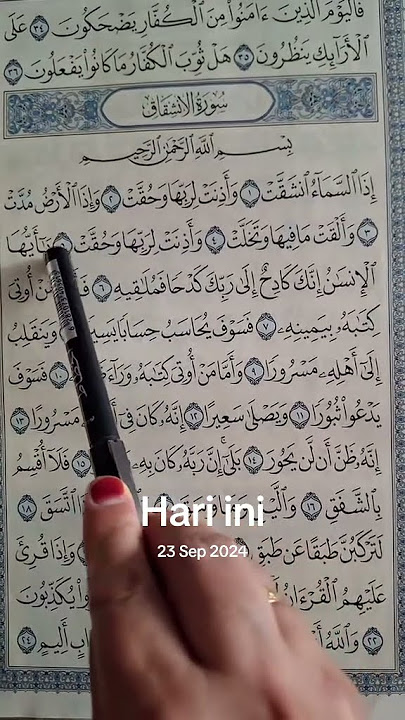 فَٱلْيَوْمَ ٱلَّذِينَ ءَامَنُوا۟ مِنَ ٱلْكُفَّارِ يَضْحَكُونَ ٣٤ عَلَى
ٱلْأَرَآئِكِ يَنظُرُونَ ٣٥ هَلْ ثُوِّبَ ٱلْكُفَّارُ مَا كَانُوا۟ يَفْعَلُونَ ٣٦
سُورَةُ الانشِقَاقِ
بِسْمِ ٱللَّهِ ٱلرَّحْمَٰنِ ٱلرَّحِيمِ
إِذَا ٱلسَّمَآءُ ٱنشَقَّتْ ١ وَأَذِنَتْ لِرَبِّهَا وَحُقَّتْ ٢ وَإِذَا ٱلْأَرْضُ مُدَّتْ
٣ وَأَلْقَتْ مَا فِيهَا وَتَخَلَّتْ ٤ وَأَذِنَتْ لِرَبِّهَا وَحُقَّتْ ٥ يَٰٓأَيُّهَا
ٱلْإِنسَٰنُ إِنَّكَ كَادِحٌ إِلَىٰ رَبِّكَ كَدْحًا فَمُلَٰقِيهِ ٦ أُوتِىَ
كِتَٰبَهُۥ بِيَمِينِهِۦ ٧ فَسَوْفَ يُحَاسَبُ حِسَابًا وَيَنقَلِبُ
إِلَىٰٓ أَهْلِهِۦ مَسْرُورًا ٩ وَأَمَّا مَنْ أُوتِىَ كِتَٰبَهُۥ ١٠ فَسَوْفَ
يَدْعُوا۟ ثُبُورًا ١١ وَيَصْلَىٰ سَعِيرًا ١٢ إِنَّهُۥ كَانَ فِىٓ مَسْرُورًا ١٣
إِنَّهُۥ ظَنَّ أَن لَّن يَحُورَ ١٤ بَلَىٰٓ إِنَّ رَبَّهُۥ كَانَ بِهِۦ ١٥ فَلَآ أُقْسِمُ
بِٱلشَّفَقِ ١٦ ٱتَّسَقَ ١٨
لَتَرْكَبُنَّ طَبَقًا عَن طَبَقٍ وَإِذَا قُرِئَ
عَلَيْهِمُ ٱلْقُرْءَانُ يُكَذِّبُونَ
٢٢ وَٱللَّهُ أَلِيمٍ ٢٤
Hari ini
23 Sep 2024